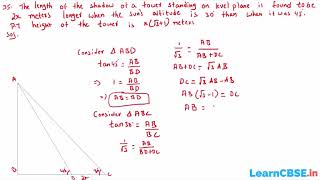 25. The length of the shadow of a tower standing on level plane is found to be
2x meters longer when the sun's altitude is 30° than when it was 45°.
P.T height of the tower is x(√3+1) meters
Sol.
Consider △ABD
tan45 = AB/BD
⇒ 1 = AB/BD
⇒ AB = BD
Consider △ABC
tan30° = AB/BC
1/√3 = AB/BD+DC
1/√3 = AB/AB+DC
AB+DC = √3 AB
DC = √3 AB - AB
AB(√3-1) = DC
AB =
A
B
D
C
45°
30°
2x
LearnCBSE.in